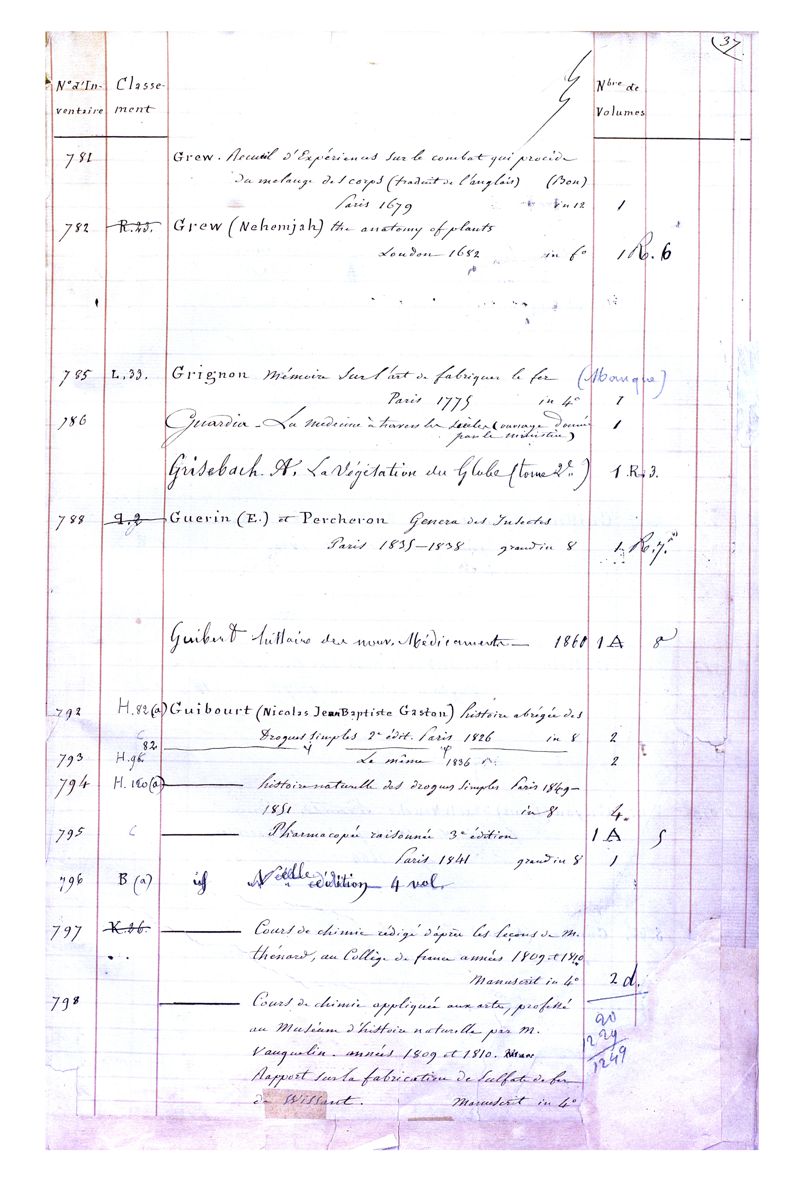 37
N° d'In- Classe- Nbre de
ventaire ment Volumes
781 Grew. Recueil d'Expériences sur le combat qui procède
du mélange des corps (traduit de l'anglais) (Bon)
Paris 1679 in 12 1
782 R.23. Grew (Nehemjah) the anatomy of plants
London 1682 in f° 1 R. 6
785 L.33. Grignon Mémoire sur l'art de fabriquer le fer (Manque)
Paris 1775 in 4° 1
786 Guardia - La medecine à travers les siècles (ouvrage donné 1
par le ministère)
Grisebach. A. La Végétation du Globe (tome 2e.) 1.R.3.
788 Q.2 Guerin (E.) et Percheron Genera des Insectes
Paris 1835-1838 grand in 8 1 R.7.
Guibert histoire des nouv. Médicaments - 1860 1 A 8
792 H.82(a) Guibourt (Nicolas Jean Baptiste Gaston) histoire abrégée des
C Drogues simples 2e édit. Paris 1826 in 8 2
82
793 H.98. Le même 1836 2
794 H.120(a) histoire naturelle des drogues simples Paris 1849-
1851 in 8 4.
795 C Pharmacopée raisonnée 3e édition 1 A 5
Paris 1841 grand in 8 1
796 B (a) id Nelle édition 4 vol.
797 X.26. Cours de chimie rédigé d'après les leçons de M.
thénard, au Collège de france années 1809 et 1810
Manuscrit in 4° 2 d.
798 Cours de chimie appliquée aux arts, professé
au Muséum d'histoire naturelle par M.
Vauquelin. années 1809 et 1810.
Rapport sur la fabrication de sulfate de fer
de Wissant. Manuscrit in 4°
20
1229
1249